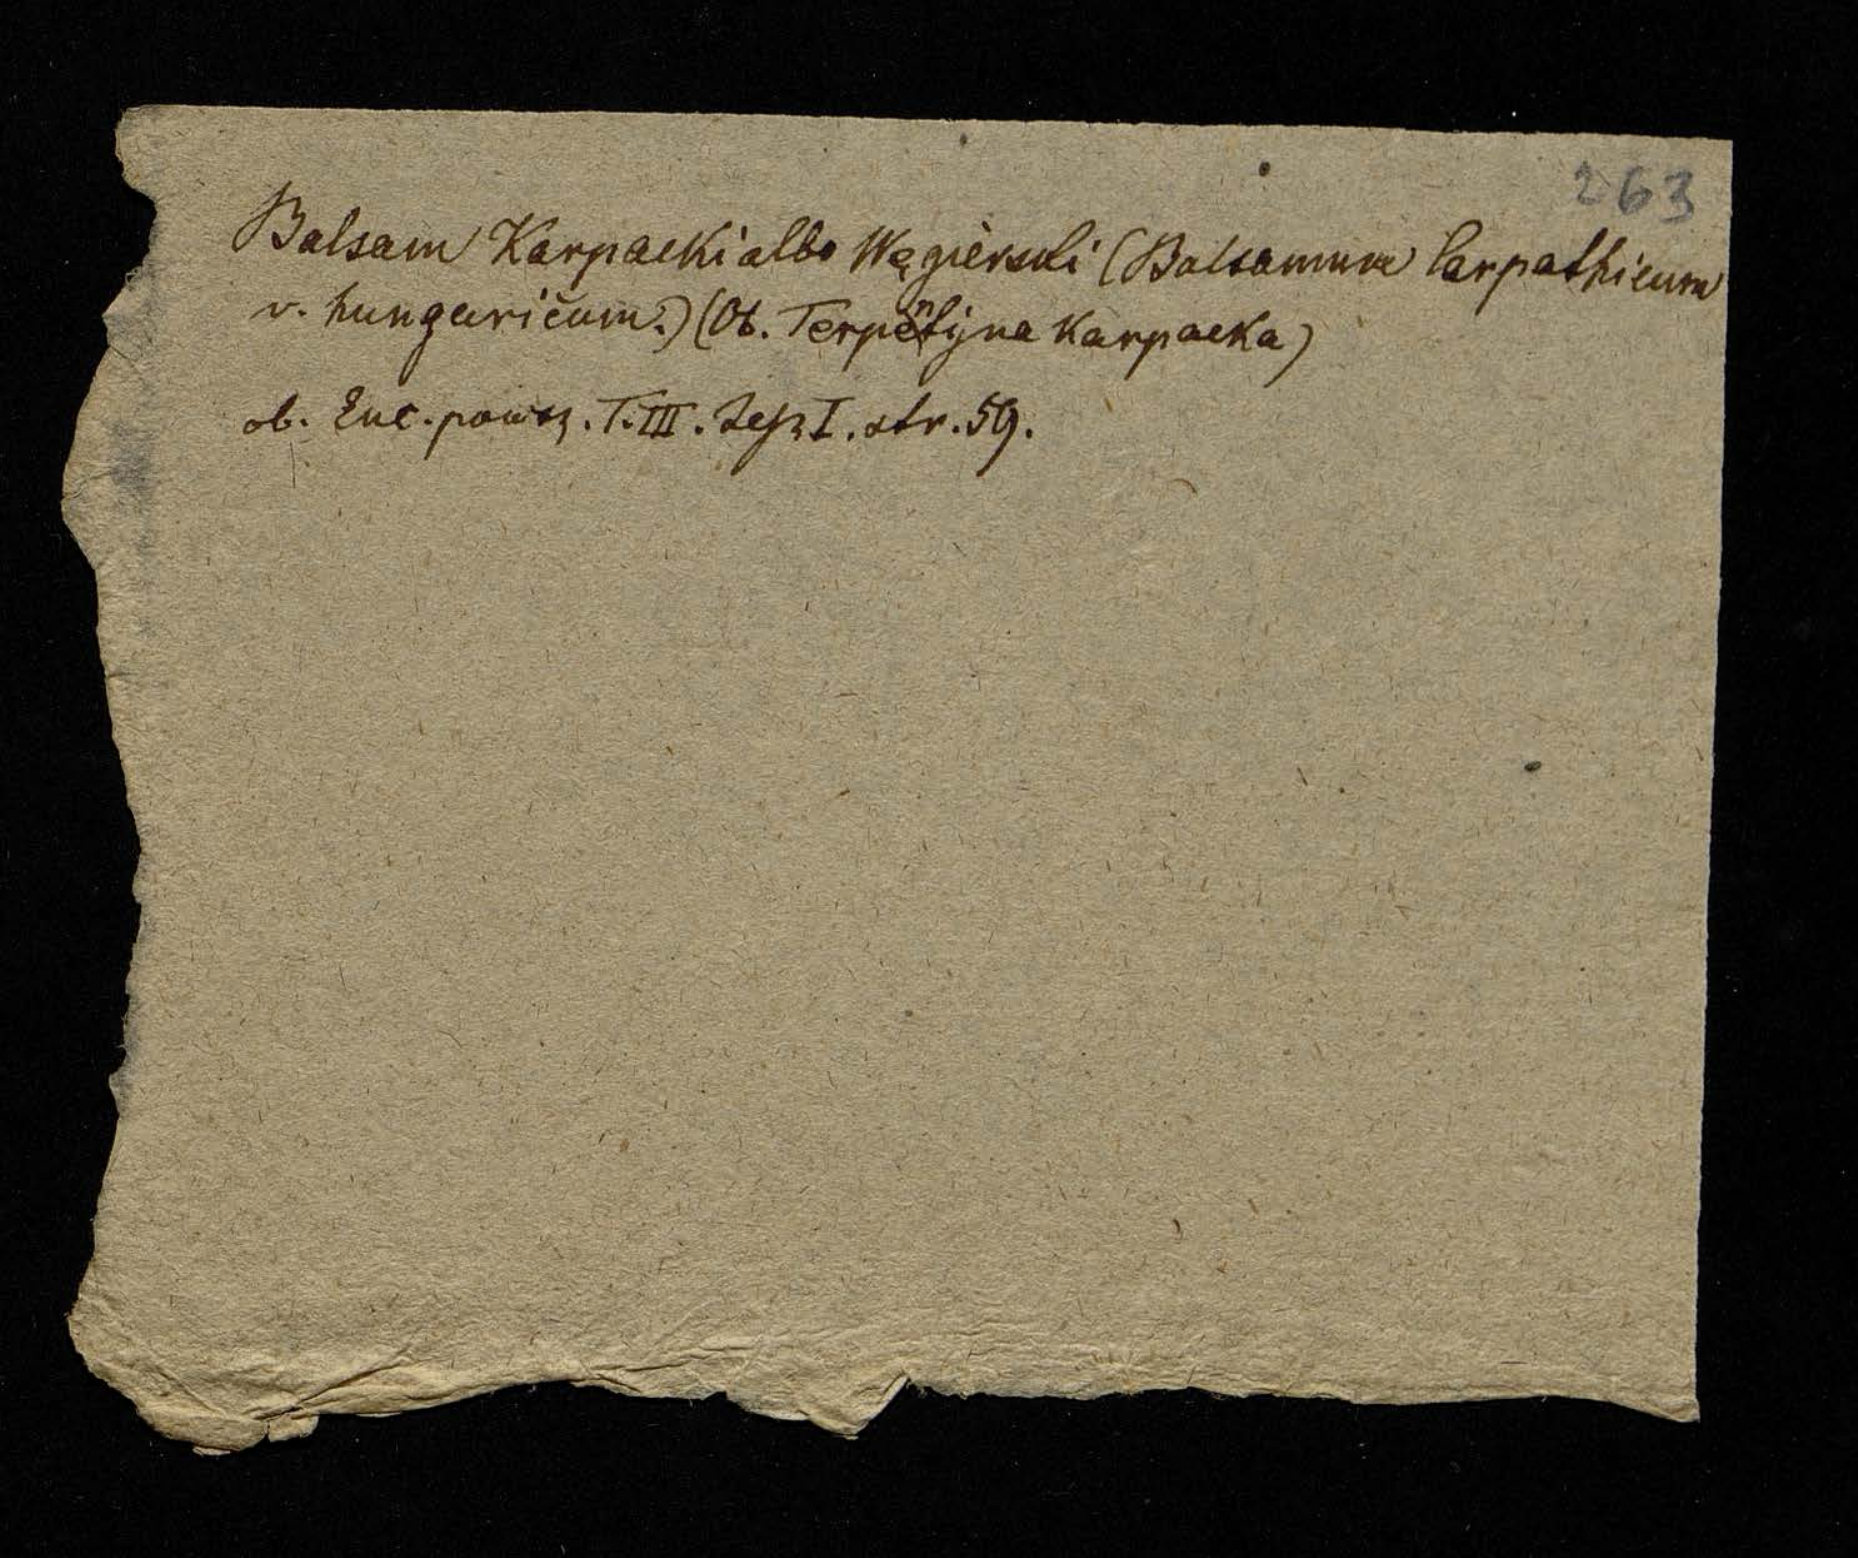 263
Balsam Karpacki albo Węgierski (Balsamum Carpathicum
v. hungaricum.) (Ob. Terpentyna Karpacka)
ob. Enc. powsz. T. III. Zesz I. str. 59.